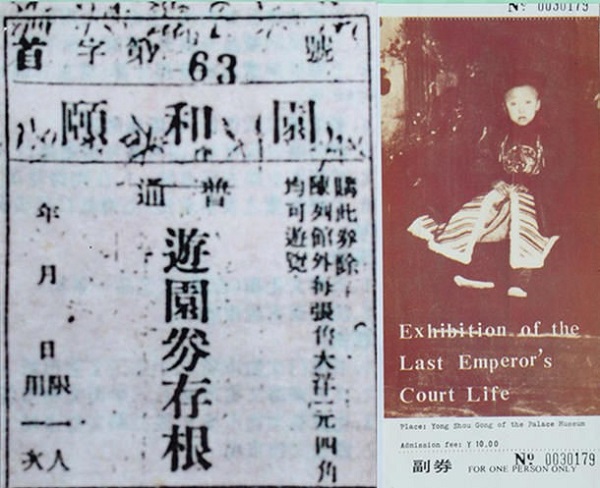 首字第63號
頤和園
普通
購此券除
陳列館外
均可遊覽
每張售大洋一元四角
遊園券存根
年 月 日
限一人
用一次
№ 0030179
Exhibition of the
Last Emperor's
Court Life
Place: Yong Shou Gong of the Palace Museum
Admission fee: ¥ 10.00
№ 0030179
副券 FOR ONE PERSON ONLY